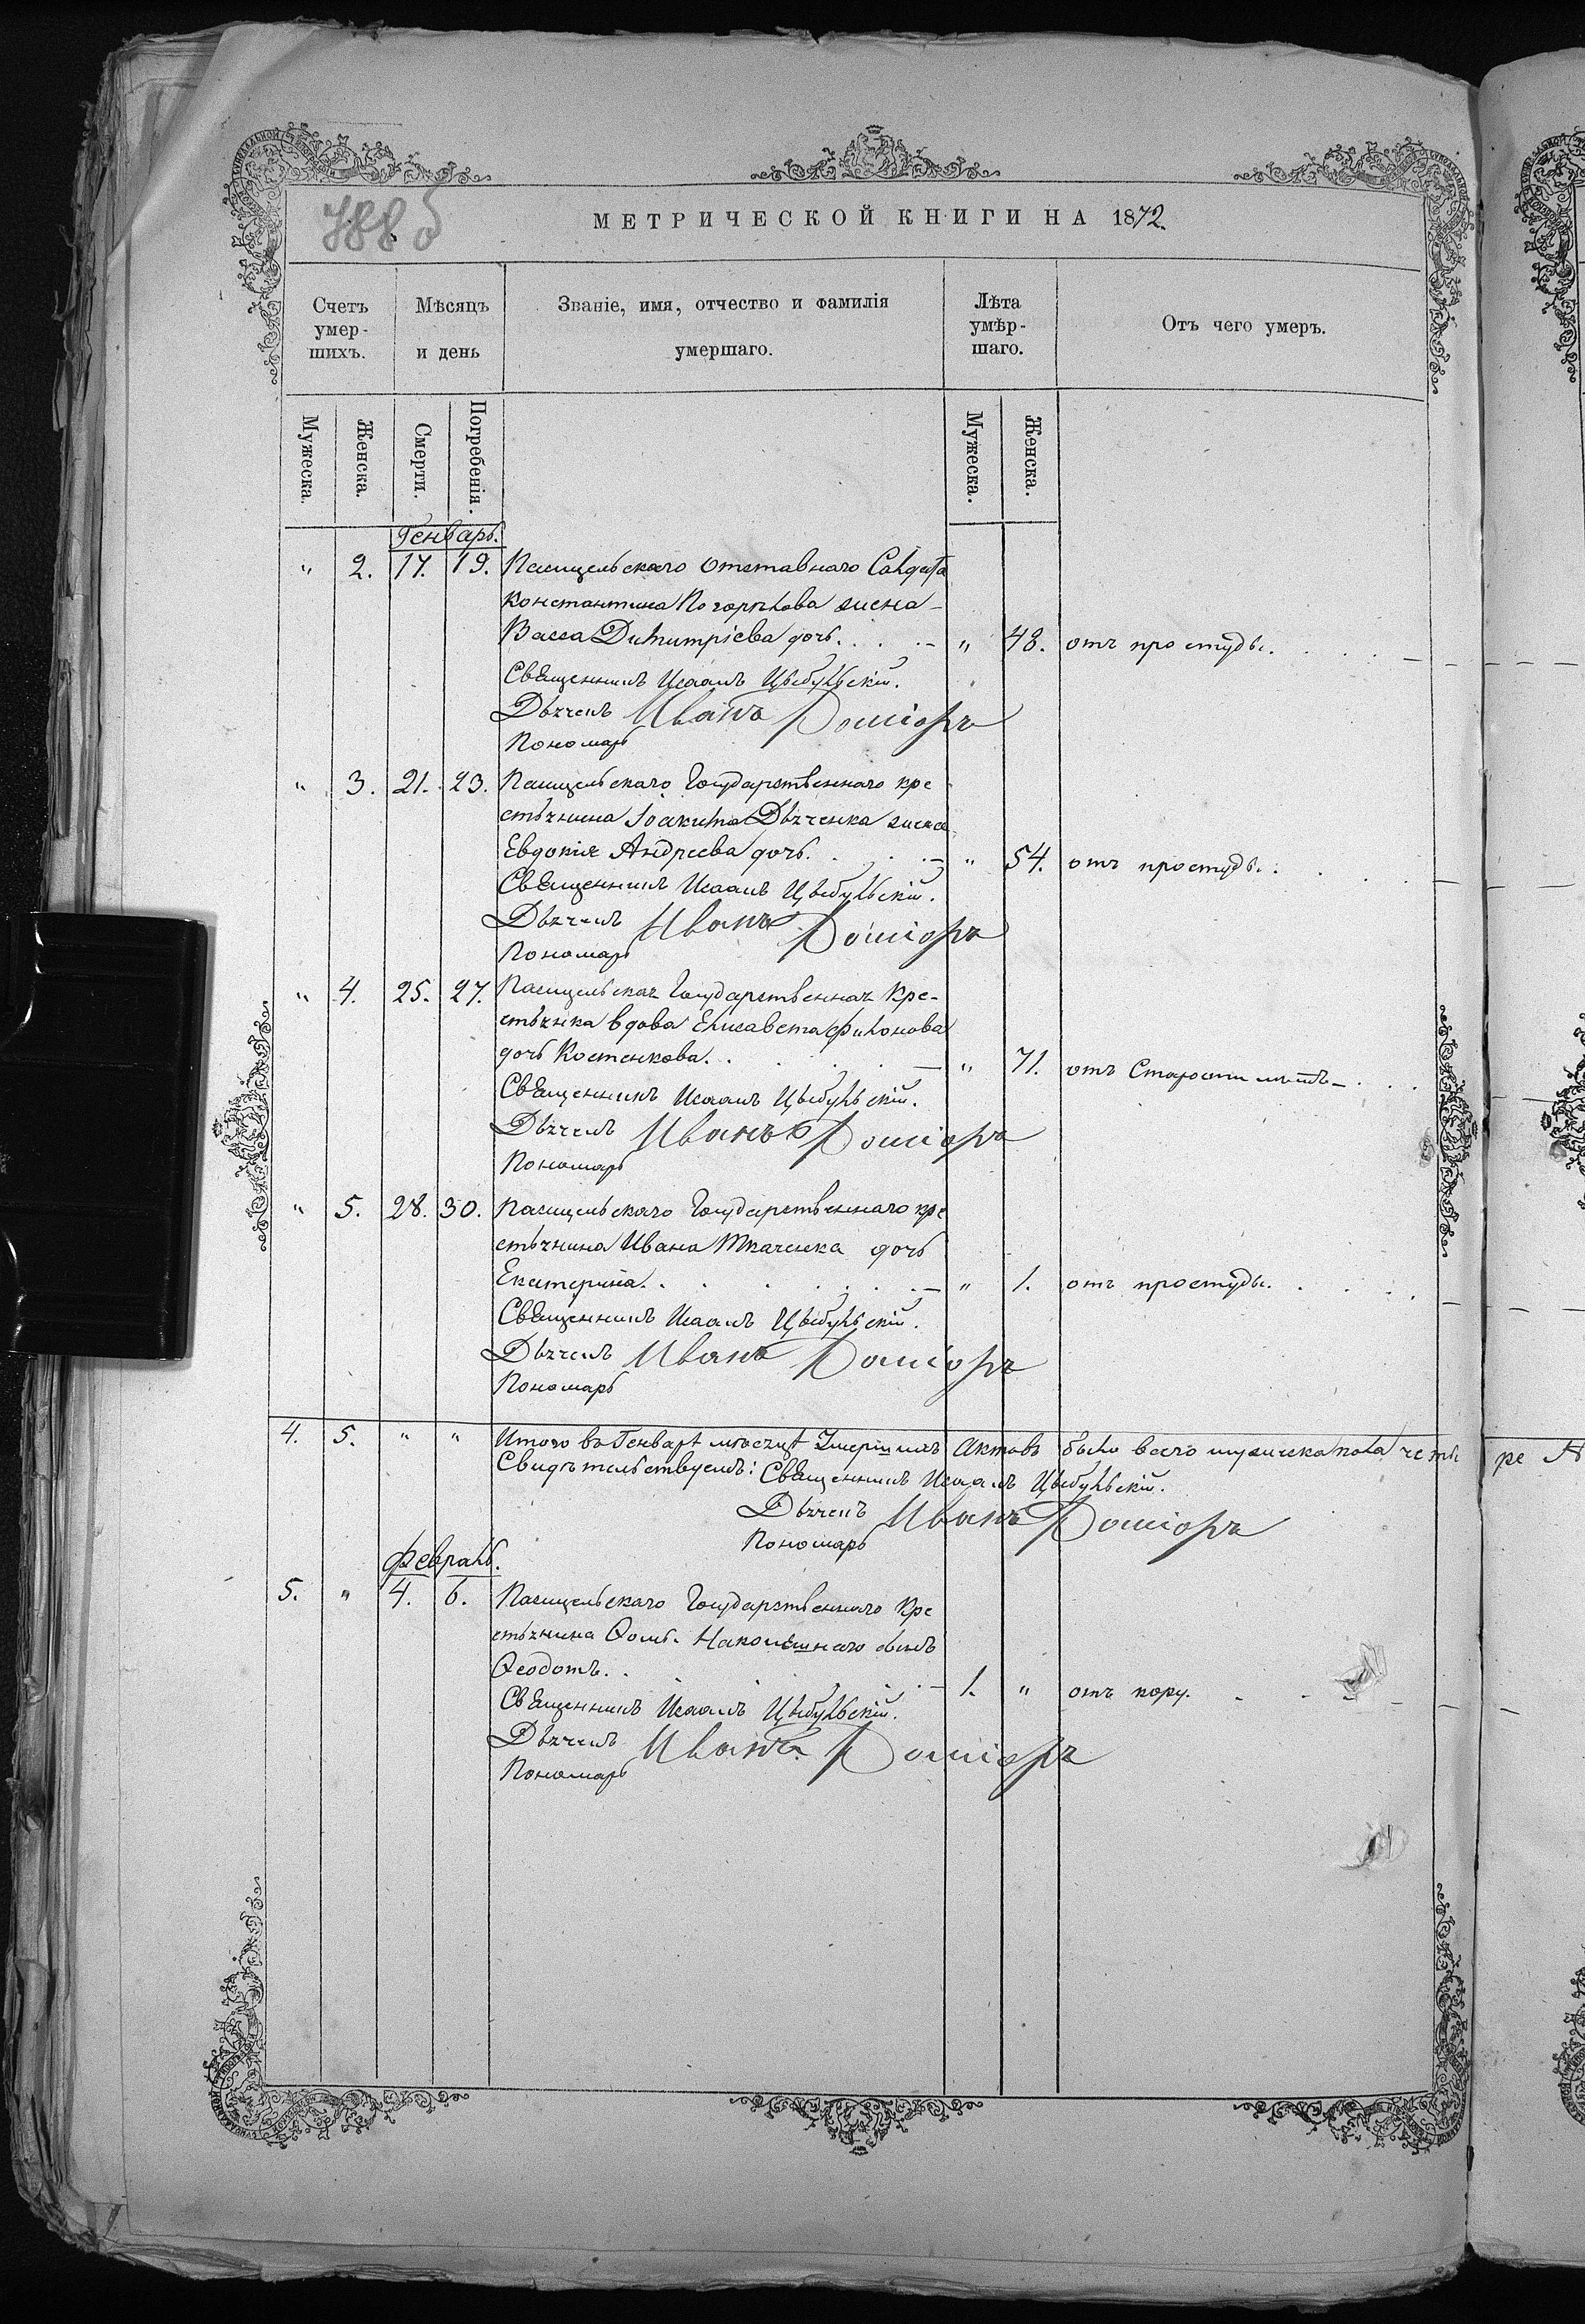 788 б
МЕТРИЧЕСКОЙ КНИГИ НА 1872.
Счетъ умер-шихъ.
Мѣсяцъ и день
Званіе, имя, отчество и фамилія умершаго.
Лѣта умѣр-шаго.
Отъ чего умеръ.
Мужеска. Женска. Смерти. Погребенія. Мужеска. Женска.
Генварь.
" 2. 17. 19. отставнаго Солдата
Константина жена
Васса Димитріева дочь. " 48. отъ простуды.
Священникъ Исаакъ Цыбульскій.
Дьячекъ Иванъ
Пономарь
" 3. 21. 23. Государственнаго кре
стьянина Іоакима Дьяченка жена
Евдокія Андреева дочь. " 54. отъ простуды.
Священникъ Исаакъ Цыбульскій.
Дьячекъ Иванъ
Пономарь
" 4. 25. 27. Государственная Кре-
стьянка вдова Елисавета Филонова
дочь Костенкова. " 71. отъ Старости лѣтъ
Священникъ Исаакъ Цыбульскій.
Дьячекъ Иванъ
Пономарь
" 5. 28. 30. Государственнаго кре
стьянина Ивана Ткаченка дочь
Екатерина. " 1. отъ простуды.
Священникъ Исаакъ Цыбульскій.
Дьячекъ Иванъ
Пономарь
4. 5. " " Итого въ Генварѣ мѣсяцѣ Умершихъ Актовъ было всего мужеска пола четы ре
Свидѣтельствуемъ: Священникъ Исаакъ Цыбульскій.
Дьячекъ Иванъ
Пономарь
Февраль.
5. " 4. 6. Государственнаго Кре
стьянина Ѳомы сынъ
Ѳеодотъ. 1. " отъ кору.
Священникъ Исаакъ Цыбульскій.
Дьячекъ Иванъ
Пономарь